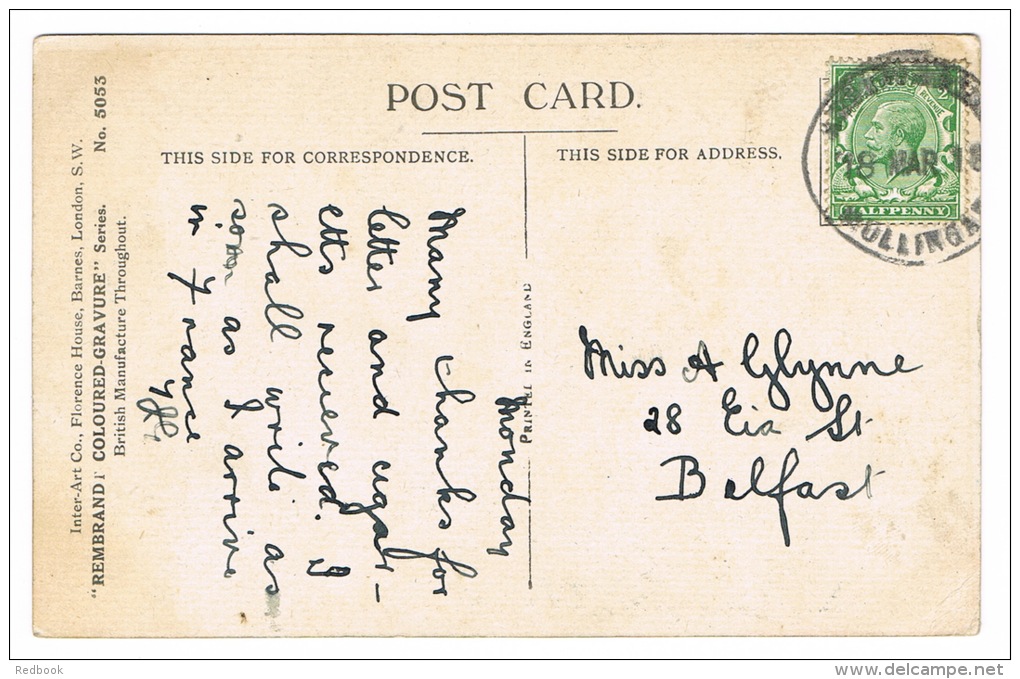 POST CARD.
THIS SIDE FOR CORRESPONDENCE.
THIS SIDE FOR ADDRESS.
Inter-Art Co., Florence House, Barnes, London, S.W.
"REMBRANDT COLOURED-GRAVURE" Series. No. 5053
British Manufacture Throughout.
Monday
Many thanks for
letter and cigar-
etts received. I
shall write as
soon as I arrive
in France
PRINTED IN ENGLAND
HALFPENNY
18 MAR
MULLINGA
Miss A Glynne
28 Eia St
Belfast
Redbook
www.delcampe.net